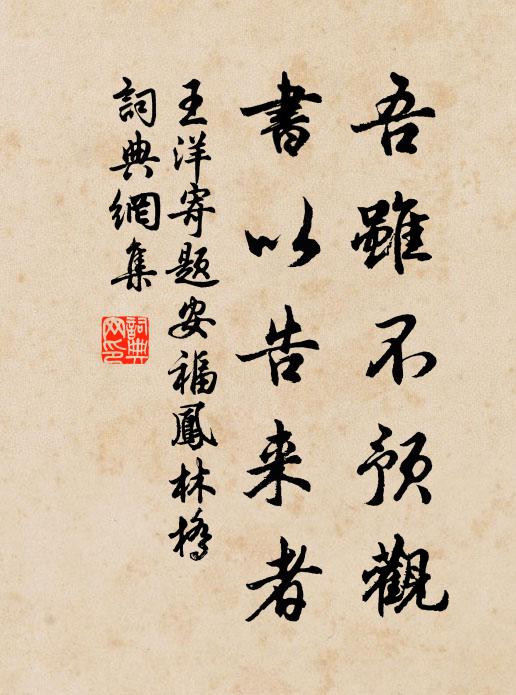 吾雖不預觀
書以告来者
王洋寄题安福鳳林橋
詞典網集
詞典网印